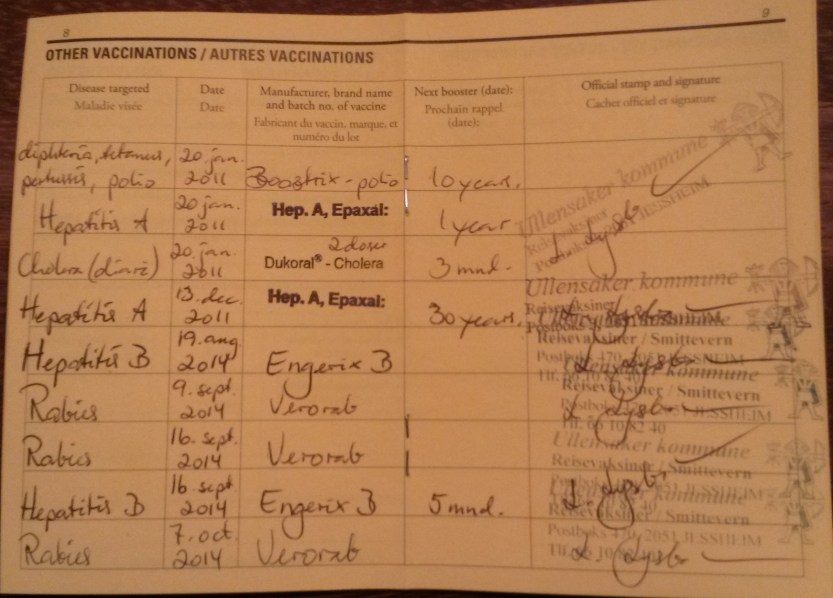 8
9
OTHER VACCINATIONS / AUTRES VACCINATIONS
Disease targeted
Maladie visée
Date
Date
Manufacturer, brand name
and batch no. of vaccine
Fabricant du vaccin, marque, et
numéro du lot
Next booster (date):
Prochain rappel
(date):
Official stamp and signature
Cachet officiel et signature
diphteria, tetanus, 20. jan.
pertussis, polio 2011 Boostrix - polio 10 years.
Ullensaker kommune
20 jan. Hep. A, Epaxal:
Hepatitis A 2011 1 year
JESSHEIM
20. jan. 2 doser
Cholera (diaré) 2011 Dukoral® - Cholera 3 mnd.
Ullensaker kommune
13. dec. Hep. A, Epaxal:
Hepatitis A 2011 30 years.
Reisevaksiner
19. aug
Hepatitis B 2014 Engerix B
Reisevaksiner / Smittevern
9. sept.
Rabies 2014 Verorab
Reisevaksiner / Smittevern
JESSHEIM
Tlf. 66 10 82 40
16. sept.
Rabies 2014 Verorab
Ullensaker kommune
Reisevaksiner / Smittevern
16. sept.
Hepatitis B 2014 Engerix B 5 mnd.
Reisevaksiner / Smittevern
7. oct.
Rabies 2014 Verorab
Postboks 470, 2051 JESSHEIM